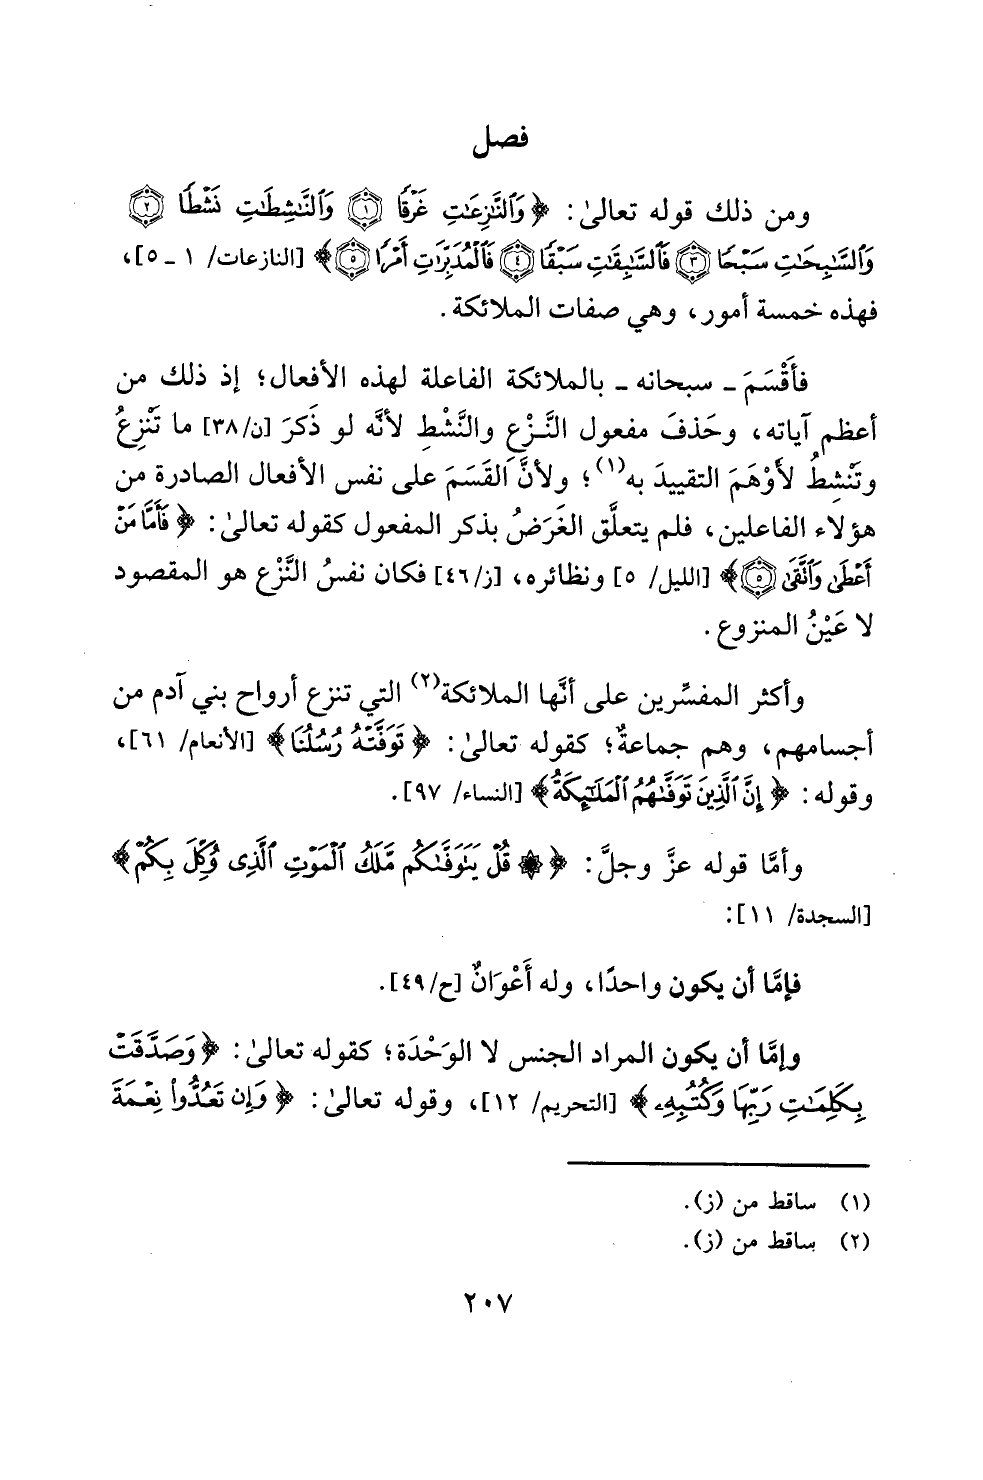 فصل
ومن ذلك قوله تعالىٰ: ﴿وَٱلنَّٰزِعَٰتِ غَرْقًا ١ وَٱلنَّٰشِطَٰتِ نَشْطًا ٢
وَٱلسَّٰبِحَٰتِ سَبْحًا ٣ فَٱلسَّٰبِقَٰتِ سَبْقًا ٤ فَٱلْمُدَبِّرَٰتِ أَمْرًا ٥﴾ [النازعات/ ١ ـ ٥]،
فهذه خمسة أمور، وهي صفات الملائكة.
فأَقْسَمَ ـ سبحانه ـ بالملائكة الفاعلة لهذه الأفعال؛ إذ ذلك من
أعظم آياته، وحَذفَ مفعول النَّـزْع والنَّشْطِ لأنَّه لو ذَكَرَ [ن/٣٨] ما تَنْزِعُ
وتَنْشِطُ لأَوْهَمَ التقييدَ به(١)؛ ولأنَّ القَسَمَ على نفس الأفعال الصادرة من
هؤلاء الفاعلين، فلم يتعلَّق الغَرَضُ بذكر المفعول كقوله تعالىٰ: ﴿فَأَمَّا مَنْ
أَعْطَىٰ وَٱتَّقَىٰ ٥﴾ [الليل/ ٥] ونظائره، [ز/٤٦] فكان نفسُ النَّزْع هو المقصود
لا عَيْنُ المنزوع.
وأكثر المفسِّرين على أنَّها الملائكة(٢) التي تنزع أرواح بني آدم من
أجسامهم، وهم جماعةٌ؛ كقوله تعالىٰ: ﴿تَوَفَّتْهُ رُسُلُنَا﴾ [الأنعام/ ٦١]،
وقوله: ﴿إِنَّ ٱلَّذِينَ تَوَفَّىٰهُمُ ٱلْمَلَٰٓئِكَةُ﴾ [النساء/ ٩٧].
وأمَّا قوله عزَّ وجلَّ: ﴿۞ قُلْ يَتَوَفَّىٰكُم مَّلَكُ ٱلْمَوْتِ ٱلَّذِى وُكِّلَ بِكُمْ﴾
[السجدة/ ١١]:
فإمَّا أن يكون واحدًا، وله أَعْوَانٌ [ح/٤٩].
وإمَّا أن يكون المراد الجنس لا الوَحْدَة؛ كقوله تعالىٰ: ﴿وَصَدَّقَتْ
بِكَلِمَٰتِ رَبِّهَا وَكُتُبِهِۦ﴾ [التحريم/ ١٢]، وقوله تعالىٰ: ﴿وَإِن تَعُدُّوا۟ نِعْمَةَ
(١) ساقط من (ز).
(٢) ساقط من (ز).
٢٠٧